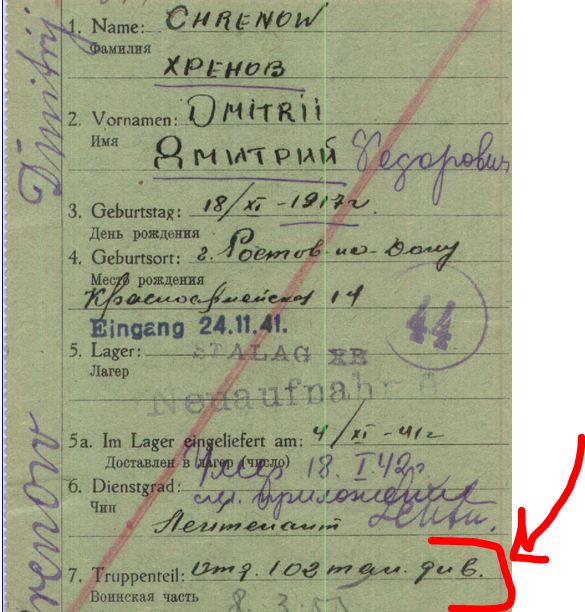 Dmitrij
1. Name: CHRENOW
Фамилия
ХРЕНОВ
2. Vornamen: DMITRII
Имя
ДМИТРИЙ Федорович
3. Geburtstag: 18/XI-1917г.
День рождения
4. Geburtsort: г. Ростов-на-Дону
Место рождения
Красноармейская 14
Eingang 24.11.41.
44
5. Lager: STALAG XB
Лагер
Neuaufnahme
5a. Im Lager eingeliefert am: 4/XI-41г
Доставлен в лагер (число)
Умер 18.I.42г.
6. Dienstgrad:
см. приложение
Чин
Лейтенант Leutn.
7. Truppenteil: Отд. 102 тан. див.
Воинская часть
8.3.